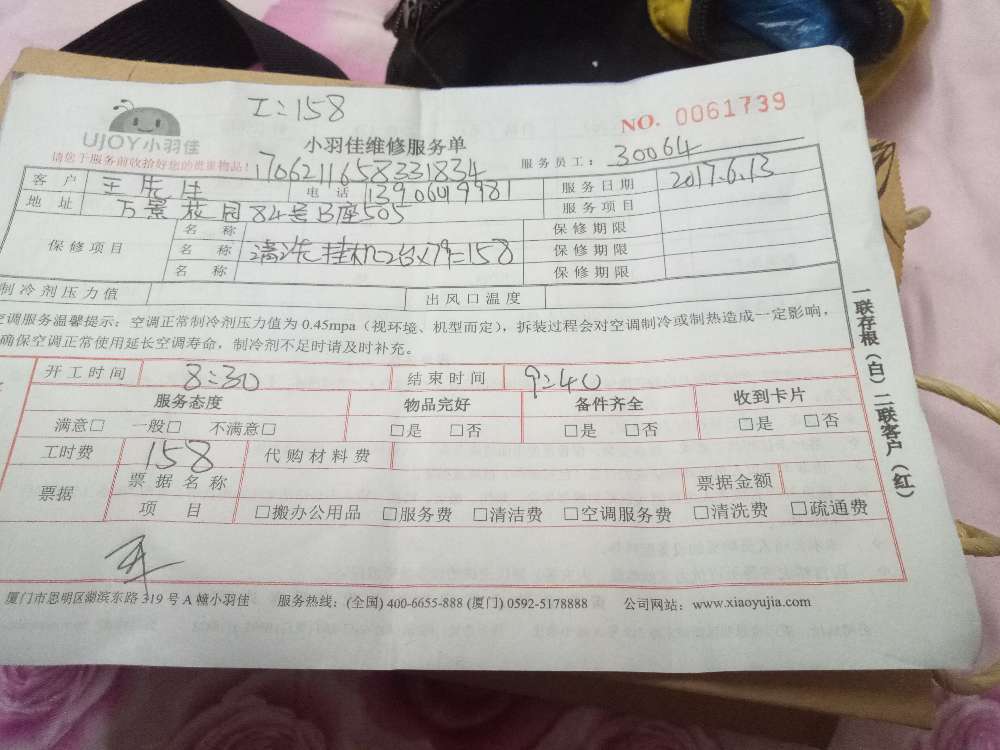 工:158
UJOY小羽佳
小羽佳维修服务单
NO. 0061739
请您于服务前收拾好您的贵重物品!
1706211658331834
服务员工: 30064
客 户 王先生 电 话 13906049981 服务日期 2017.6.13
地 址 万景花园84号B座505 服务项目
保修项目 名 称 保修期限
名 称 清洗挂机2台x79=158 保修期限
名 称 保修期限
制冷剂压力值 出风口温度
空调服务温馨提示:空调正常制冷剂压力值为 0.45mpa(视环境、机型而定),拆装过程会对空调制冷或制热造成一定影响,
确保空调正常使用延长空调寿命,制冷剂不足时请及时补充。
开工时间 8:30 结束时间 9:40
服务态度 物品完好 备件齐全 收到卡片
满意□ 一般□ 不满意□ □是 □否 □是 □否 □是 □否
工时费 158 代购材料费
票据 票据名称 票据金额
项 目 □搬办公用品 □服务费 □清洁费 □空调服务费 □清洗费 □疏通费
厦门市思明区湖滨东路 319 号 A 幢小羽佳 服务热线:(全国) 400-6655-888 (厦门) 0592-5178888 公司网站:www.xiaoyujia.com
一联存根(白)二联客户(红)